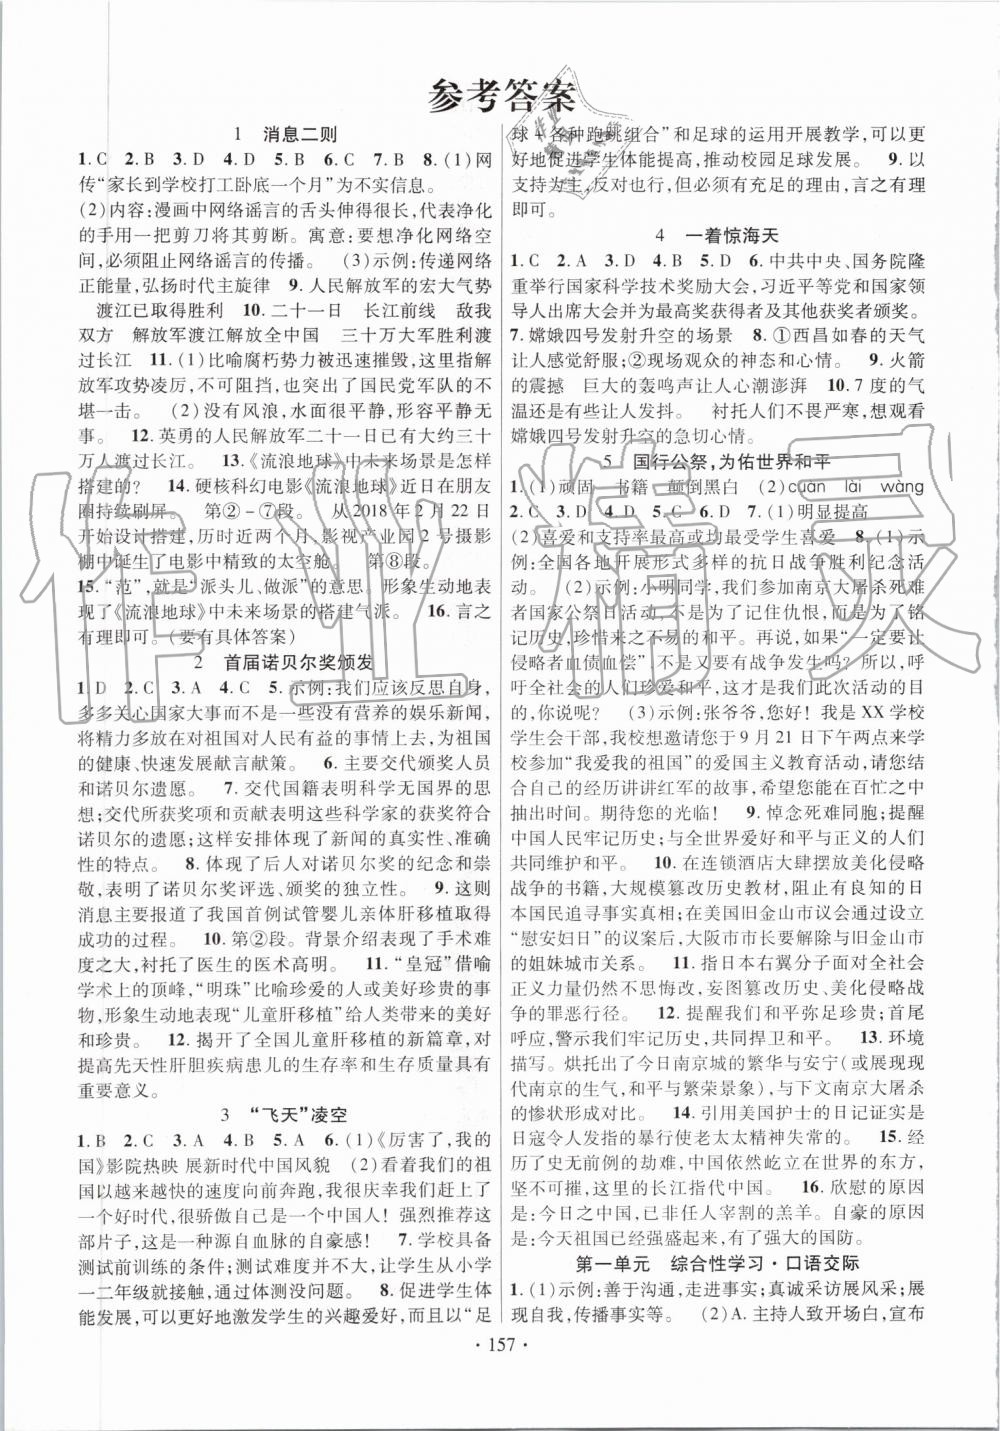 参考答案
1 消息二则
1. C 2. B 3. D 4. D 5. B 6. B 7. B 8. (1)网
传“家长到学校打工卧底一个月”为不实信息。
(2)内容:漫画中网络谣言的舌头伸得很长,代表净化
的手用一把剪刀将其剪断。寓意:要想净化网络空
间,必须阻止网络谣言的传播。 (3)示例:传递网络
正能量,弘扬时代主旋律 9. 人民解放军的宏大气势
渡江已取得胜利 10. 二十一日 长江前线 敌我
双方 解放军渡江解放全中国 三十万大军胜利渡
过长江 11. (1)比喻腐朽势力迅速摧毁,这里指解
放军攻势凌厉,不可阻挡,也突出了国民党军队的不
堪一击。 (2)没有风浪,水面很平静,形容平静无
事。 12. 英勇的人民解放军二十一日已有大约三十
万人渡过长江。 13.《流浪地球》中未来场景是怎样
搭建的? 14. 硬核科幻电影《流浪地球》近日在朋友
圈持续刷屏。 第②-⑦段。 从2018年2月22日
开始设计搭建,历时近两个月,影视产业园2号摄影
棚中诞生了电影中精致的太空舱。 第⑧段。
15.“范”,就是“派头儿、做派”的意思。形象生动地表
现了《流浪地球》中未来场景的搭建气派。 16. 言之
有理即可。(要有具体答案)
2 首届诺贝尔奖颁发
1. D 2. C 3. A 4. C 5. 示例:我们应该反思自身,
多多关心国家大事而不是没有营养的娱乐新闻,
将精力多放在对祖国对人民有益的事情上去,为祖国
的健康、快速发展献言献策。 6. 主要交代颁奖人员
和诺贝尔遗愿。 7. 交代国籍表明科学无国界的思
想;交代所获奖项和贡献表明这些科学家的获奖符合
诺贝尔的遗愿;这样安排体现了新闻的真实性、准确
性的特点。 8. 体现了后人对诺贝尔奖的纪念和崇
敬,表明了诺贝尔奖评选、颁奖的独立性。 9. 这则
消息主要报道了我国首例试管婴儿亲体肝移植取得
成功的过程。 10. 第②段。背景介绍表现了手术难
度之大,衬托了医生的医术高明。 11.“皇冠”借喻
学术上的顶峰,“明珠”比喻珍爱的人或美好珍贵的事
物,形象生动地表现“儿童肝移植”给人类带来的美好
和珍贵。 12. 揭开了全国儿童肝移植的新篇章,对
提高先天性肝胆疾病患儿的生存率和生存质量具有
重要意义。
3 “飞天”凌空
1. B 2. C 3. A 4. A 5. A 6. (1)《厉害了,我的
国》影院热映 展新时代中国风貌 (2)看着我们的祖
国以越来越快的速度向前奔跑,我很庆幸我们生在
一个好时代,很骄傲自己是一个中国人!强烈推荐这
部片子,这是一种源自血脉的自豪感! 7. 学校具备
测试前训练的条件;测试难度并不大,甚至从小学
一二年级就接触,通过体测没问题。 8. 促进学生体
能发展,可以更好地激发学生的兴趣爱好,以“足
球+各种跑跳组合”和足球的运用开展教学,可以更
好地促进学生体能提高,推动校园足球发展。 9. 以
支持为主,反对也行,但须有充足的理由,言之有理
即可。
4 一着惊海天
1. C 2. A 3. D 4. A 5. D 6. 中共中央、国务院隆
重举行国家科学技术奖励大会,习近平等党和国家领
导人出席大会并为最高奖获得者及其他获奖者颁奖。
7. 嫦娥四号发射升空的场景 8. ①西昌如春的天气
让人感觉舒服;②现场观众的神态和心情。 9. 火箭
的震撼 巨大的轰鸣声让人心潮澎湃 10. 7度的气
温还是有些让人发抖。 衬托人们不畏严寒,想观看
嫦娥四号发射升空的急切心情。
5 国行公祭,为佑世界和平
1. (1)顽固 书籍 颠倒黑白 (2)cuàn lài wàng
2. C 3. D 4. A 5. A 6. D 7. (1)明显提高
(2)喜爱和支持率最高或均最受学生喜爱 8. (1)示
例:全国各地开展形式多样的抗日战争胜利纪念活
动。 (2)示例:小明同学,我们参加南京大屠杀死难
者国家公祭日活动,不是为了记住仇恨,而是为了铭
记历史,珍惜来之不易的和平。再说,如果“一定要让
侵略者血债血偿”,不是又要有战争发生吗?所以,呼
吁全社会的人们珍爱和平,这才是我们此次活动的目
的,你说呢? (3)示例:张爷爷,您好!我是XX学校
学生会干部,我校想邀请您于9月21日下午两点来学
校参加“我爱我的祖国”的爱国主义教育活动,请您结
合自己的经历讲讲红军的故事,希望您能在百忙之中
抽出时间。期待您的光临! 9. 悼念死难同胞;提醒
中国人民牢记历史;与全世界爱好和平与正义的人们
共同维护和平。 10. 在连锁酒店大肆摆放美化侵略
战争的书籍,大规模篡改历史教材,阻止有良知的日
本国民追寻事实真相,在美国旧金山市议会通过设立
“慰安妇日”的议案后,大阪市市长要解除与旧金山市
的姐妹城市关系。 11. 指日本右翼分子面对全社会
正义力量仍然不思悔改,妄图篡改历史,美化侵略战
争的罪恶行径。 12. 提醒我们和平弥足珍贵;首尾
呼应,警示我们牢记历史,共同捍卫和平。 13. 环境
描写。烘托出了今日南京城的繁华与安宁(或展现现
代南京的生气,和平与繁荣景象),与下文南京大屠杀
的惨状形成对比。 14. 引用美国护士的日记证实是
日寇令人发指的暴行使老太太精神失常的。 15. 经
历了史无前例的劫难,中国依然屹立在世界的东方,
坚不可摧,这里的长江指代中国。 16. 欣慰的原因
是:今日之中国,已非任人宰割的羔羊。自豪的原因
是:今天祖国已经强盛起来,有了强大的国防。
第一单元 综合性学习·口语交际
1. (1)示例:善于沟通,走进事实;真诚采访展风采;展
现自我,传播事实等。 (2)A. 主持人致开场白,宣布
·157·
作业精灵